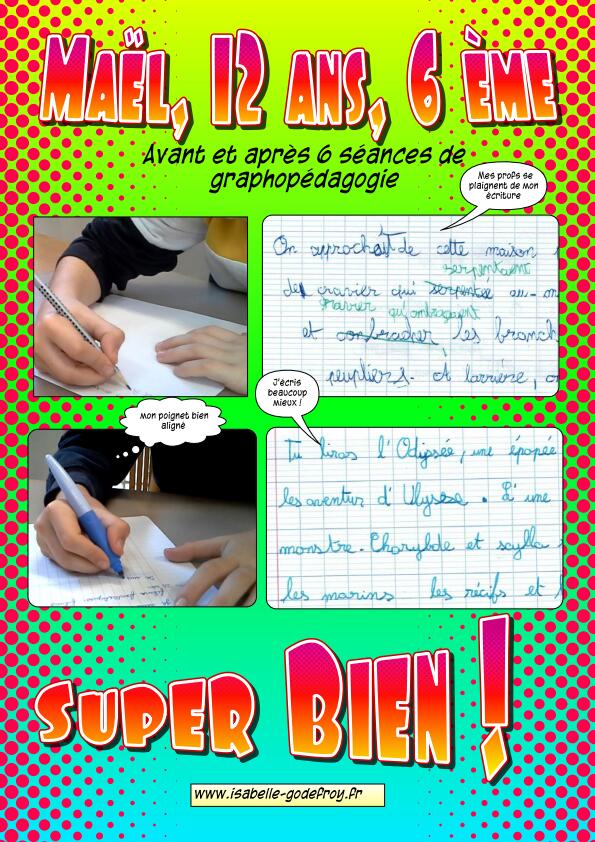 Maël, 12 ans, 6 ème
Avant et après 6 séances de
graphopédagogie
Mes profs se
plaignent de mon
écriture
On approchait de cette maison
serpentaient
de gravier qui serpentee au-
gravier qu'ombrageaient
et ombrager les branch
peupliers. A l'arrière,
J'écris
beaucoup
mieux !
Mon poignet bien
aligné
Tu liras l'Odyssée, une épopée
les aventur d'Ulysse. L'une
monstre. Charybde et scylla
les marins les récifs et
Super Bien !
www.isabelle-godefroy.fr